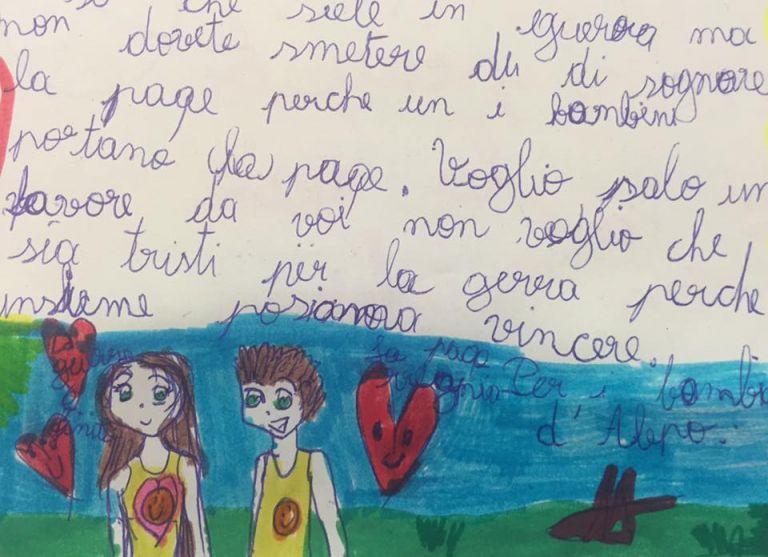 che siete in guerra ma
non dovete smetere di di sognare
la page perche un i bambini
portano la page. Voglio palo un
favore da voi non voglio che
sia tristi per la gerra perche
insieme posiamora vincere.
La guerra è finita
La paga
Per i bambi
d'Alepo.